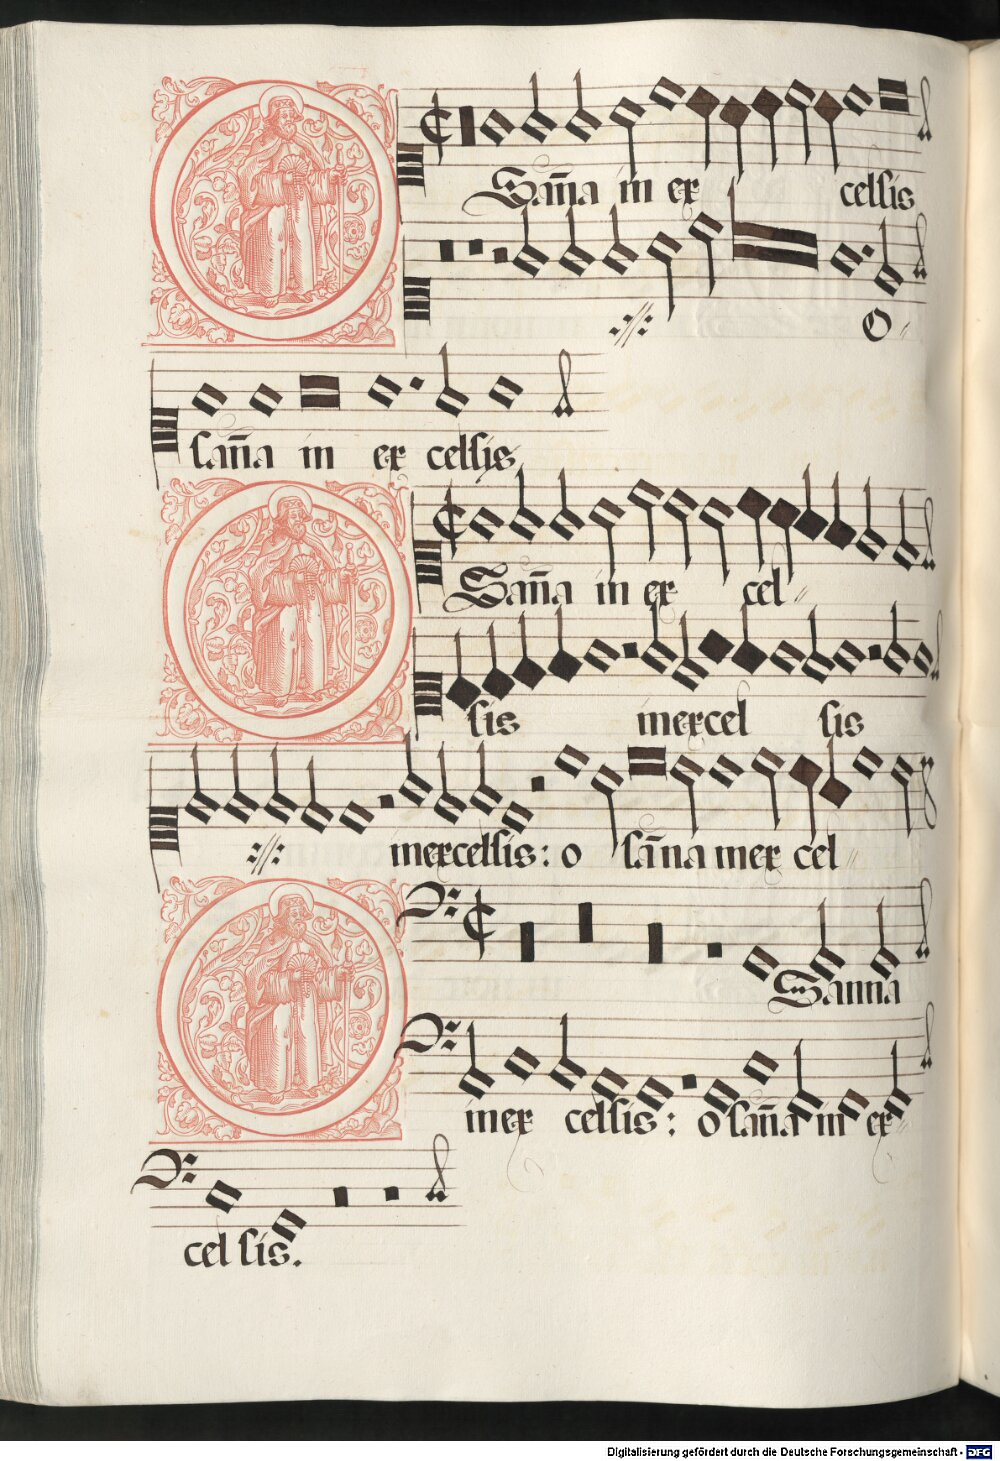 Osan̄a in ex celsis
·//· O
san̄a in ex celsis
Osan̄a in ex cel
sis in excel sis
·//· in excelsis: o san̄na in ex cel
Osanna
in ex celsis: o san̄a in ex
cel sis.
Digitalisierung gefördert durch die Deutsche Forschungsgemeinschaft - DFG